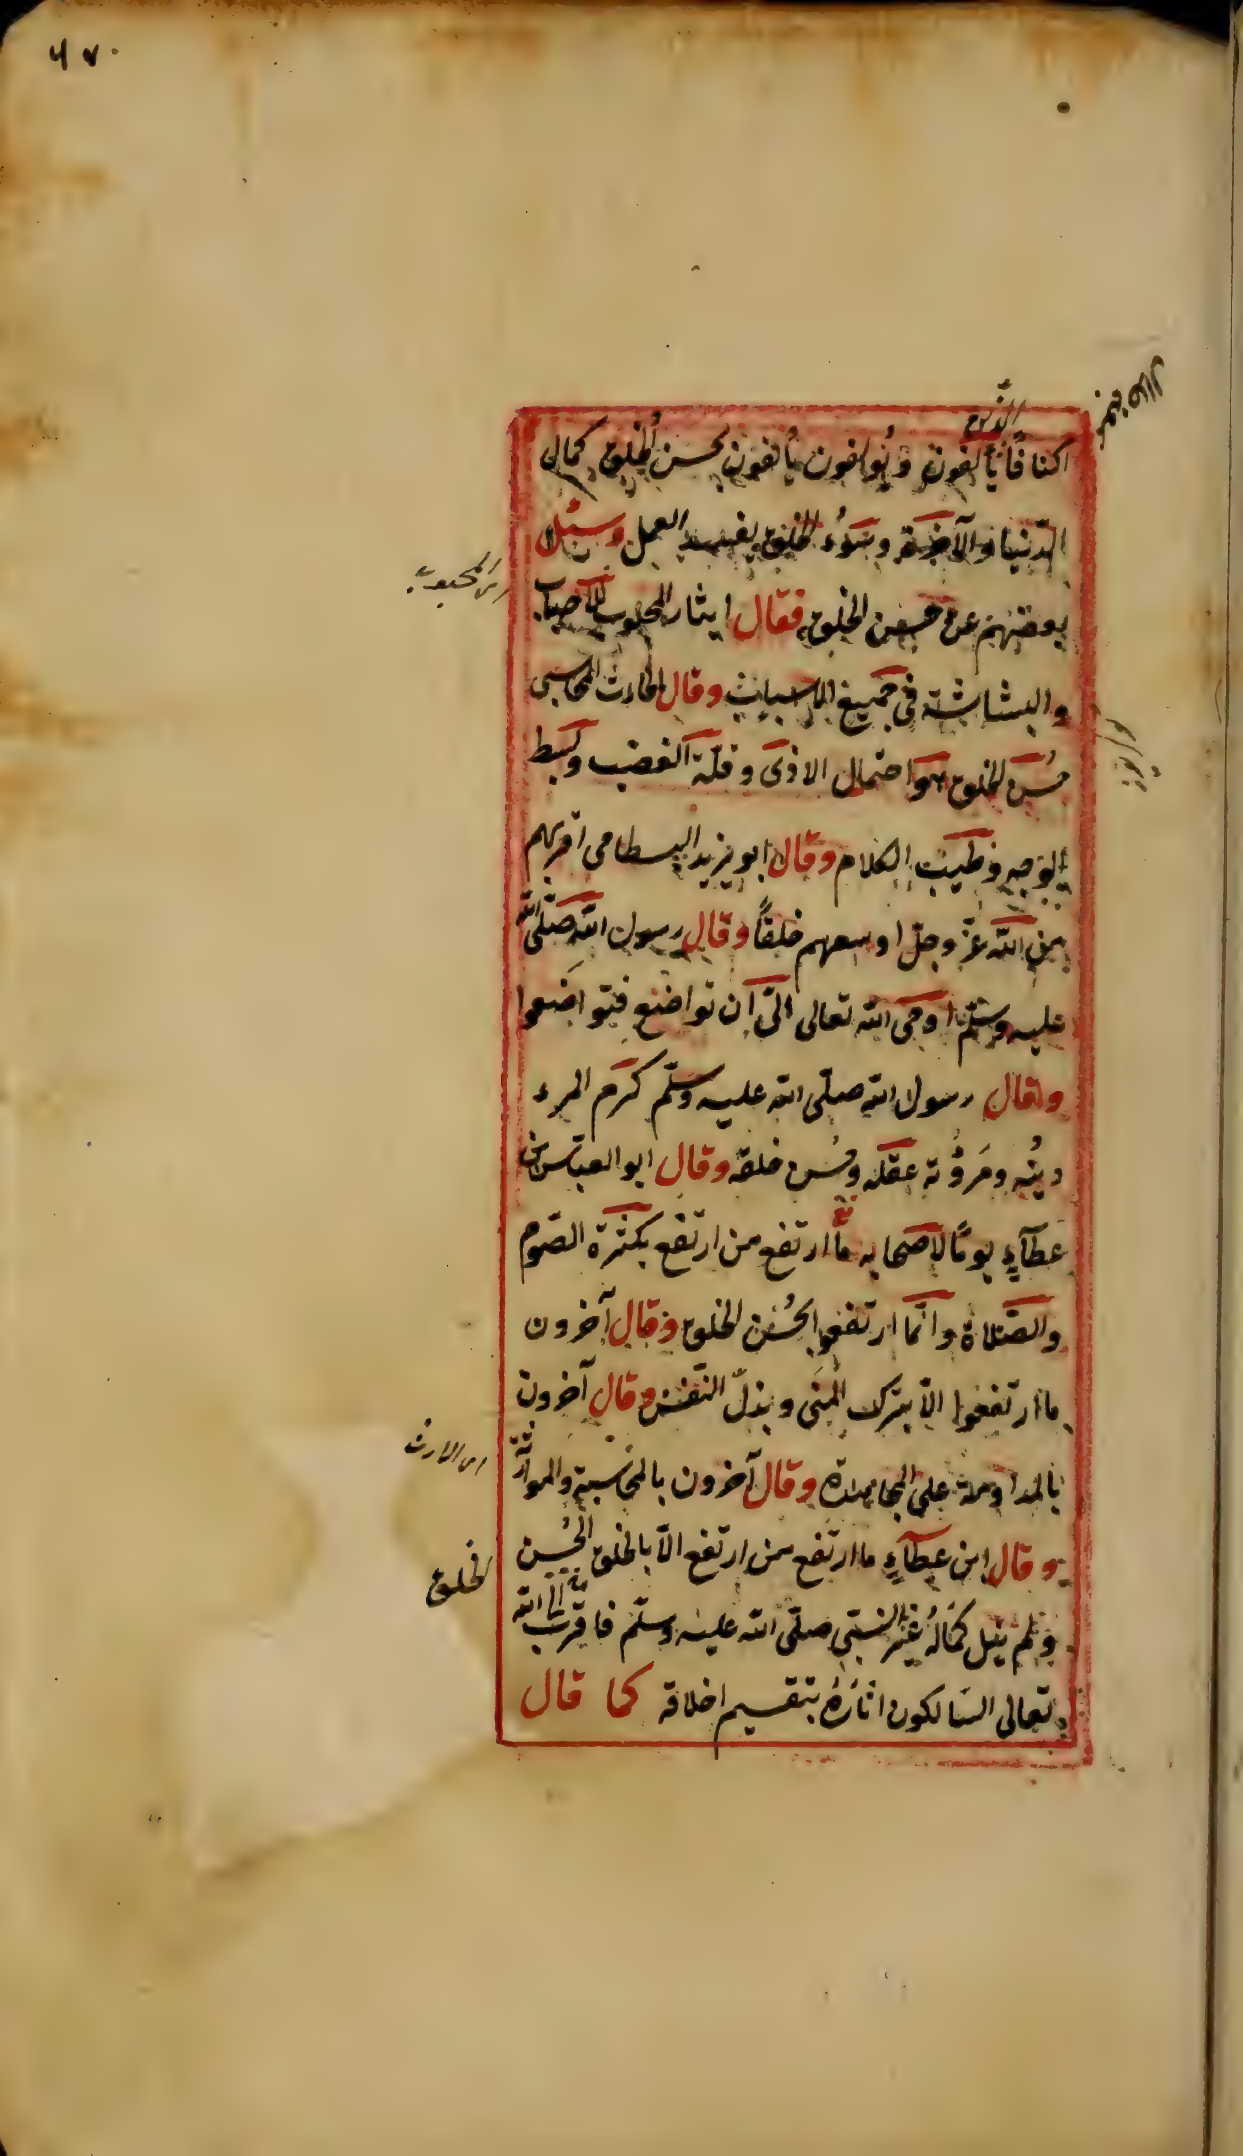 ٤٧٠
الذين
اكنافًا يألفون ويؤلفون يألفون بحسن الخلق كمالى
الدّنيا والآخرة وسوء الخلق يفسد العمل وسئل
بعضهم عن حسن الخلق فقال ايثار المحبوب للأحباب
والبشاشة فى جميع الاسباب وقال الحارث المحاسبى
حُسن الخلق هو احتمال الاذى وقلّة الغضب وبسط
الوجه وطيب الكلام وقال ابو يزيد البسطامى اقربهم
من الله عزّ وجلّ اوسعهم خلقًا وقال رسول الله صلّى الله
عليه وسلّم اوحى الله تعالى الىّ ان تواضع فتواضعوا
وقال رسول الله صلّى الله عليه وسلّم كرم المرء
دينُه ومَروُته عقله وحُسن خلقه وقال ابو العباس بن
عطآءٍ يومًا لاصحابه ما ارتفع من ارتفع بكثرة الصّوم
والصّلاة وانّما ارتفعوا بحُسن الخلق وقال آخرون
ما ارتفعوا الّا بترك المنى وبذلّ النّفس وقال آخرون
بالمداومة على المجاهدة وقال آخرون بالمحاسبة والموازنة
وقال ابن عطآءٍ ما ارتفع من ارتفع الّا بالخلق الحُسن
الخلق
ولم ينل كمالهُ غير النبّى صلّى الله عليه وسلّم فاقرب الى الله
تعالى السّالكون اثارهُ بتقسيم اخلاقه كما قال